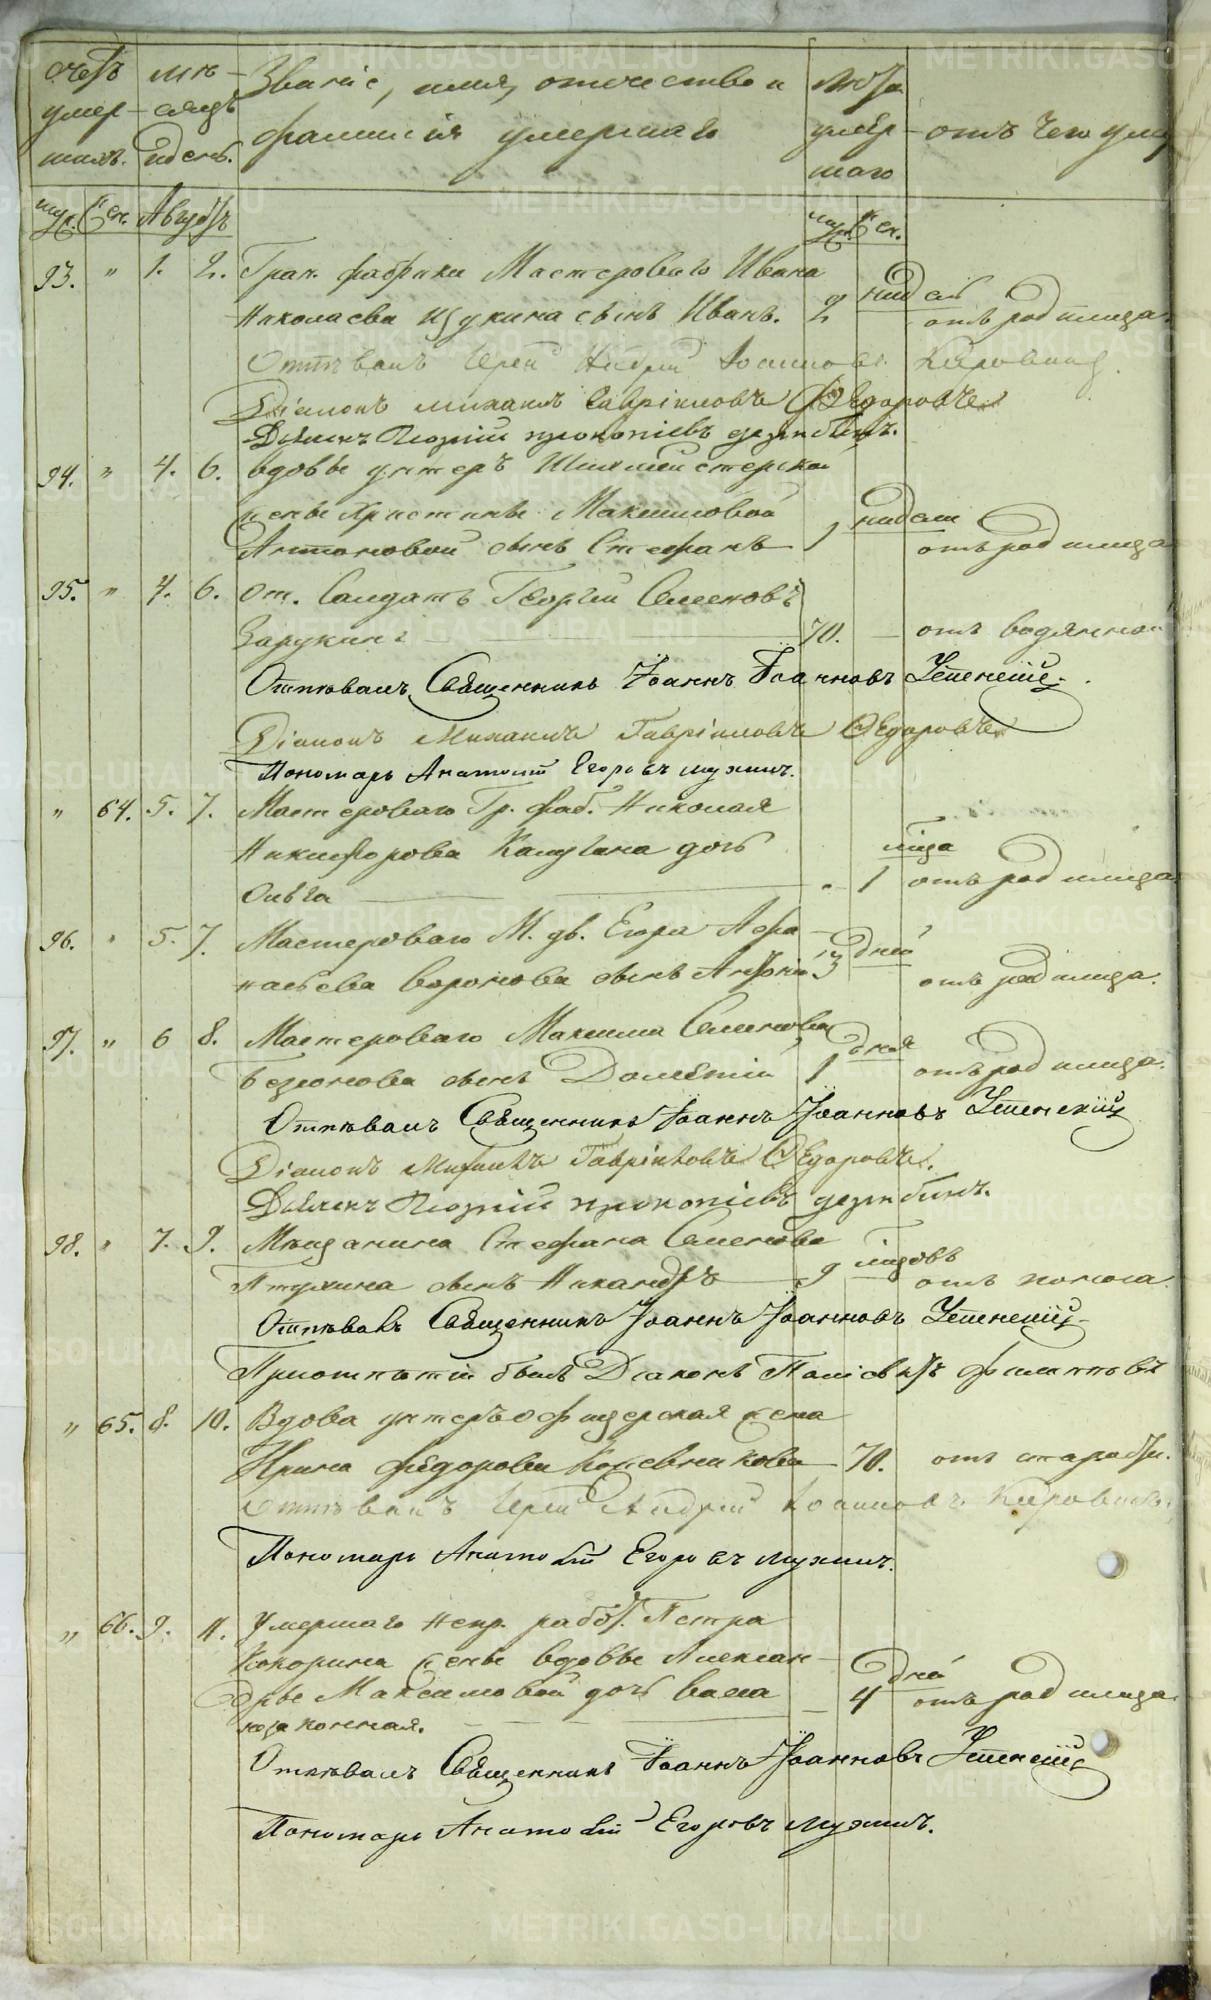 Счетъ мѣ- Званіе, имя, отчество и лѣта
умер- сяцъ фамилія умершаго умер- отъ чего умер
шихъ. и день. шаго
муж. жен. Августъ муж. жен.
93. " 1. 2. Гран. фабрики Мастероваго Ивана недѣл
Николаева Щукина сынъ Иванъ. 2 отъ родимца.
Отпѣвалъ Іерей Андрей Іоанновъ
Діаконъ Михаилъ Гавріиловъ Ѳедоровъ
Дьячекъ Прокопіевъ
94. " 4. 6. вдовы унтеръ Шихтмейстерской
жены Христины Максимовой недѣли
Антоновой сынъ Стефанъ 1 отъ родимца
95. " 4. 6. От. Солдатъ Георгій Семеновъ
Зарукинъ 70. — отъ водянной
Отпѣвалъ Священникъ Іоаннъ Іоанновъ Успенскій.
Діаконъ Михаилъ Гавріиловъ Ѳедоровъ
Пономарь Анатолій Егоровъ Мухинъ.
" 64. 5. 7. Мастероваго Гр. фаб. Николая
Никифорова Калугина дочь мѣсца
Ольга " 1 отъ родимца.
96. " 5. 7. Мастероваго М. дв. Егора Афа- дней
насьева Воронова сынъ 3 отъ родимца.
97. " 6 8. Мастероваго Максима Семенова дня
сынъ Дометій 1 отъ родимца.
Отпѣвалъ Священникъ Іоаннъ Іоанновъ Успенскій
Діаконъ Михаилъ Гавріиловъ Ѳедоровъ.
Дьячекъ Прокопіевъ
98. " 7. 9. Мѣщанина Стефана Семенова мѣсцовъ
Птухина сынъ Никандръ 9 отъ поноса.
Отпѣвалъ Священникъ Іоаннъ Іоанновъ Успенскій
При отпѣтіи былъ Діаконъ Поліевктъ Филипповъ
" 65. 8. 10. Вдова унтеръ офицерская жена
Ирина Федорова Кожевникова — 70. отъ старости.
Отпѣвалъ Іерей Андрей Іоанновъ
Пономарь Анатолій Егоровъ Мухинъ.
" 66. 9. 11. Умершаго непр. работ. Петра
Кокорина жены вдовы Алексан- дня
дры Максимовой дочь Васса — 4 отъ родимца.
незаконная.
Отпѣвалъ Священникъ Іоаннъ Іоанновъ Успенскій
Пономарь Анатолій Егоровъ Мухинъ.
METRIKI.GASO-URAL.RU